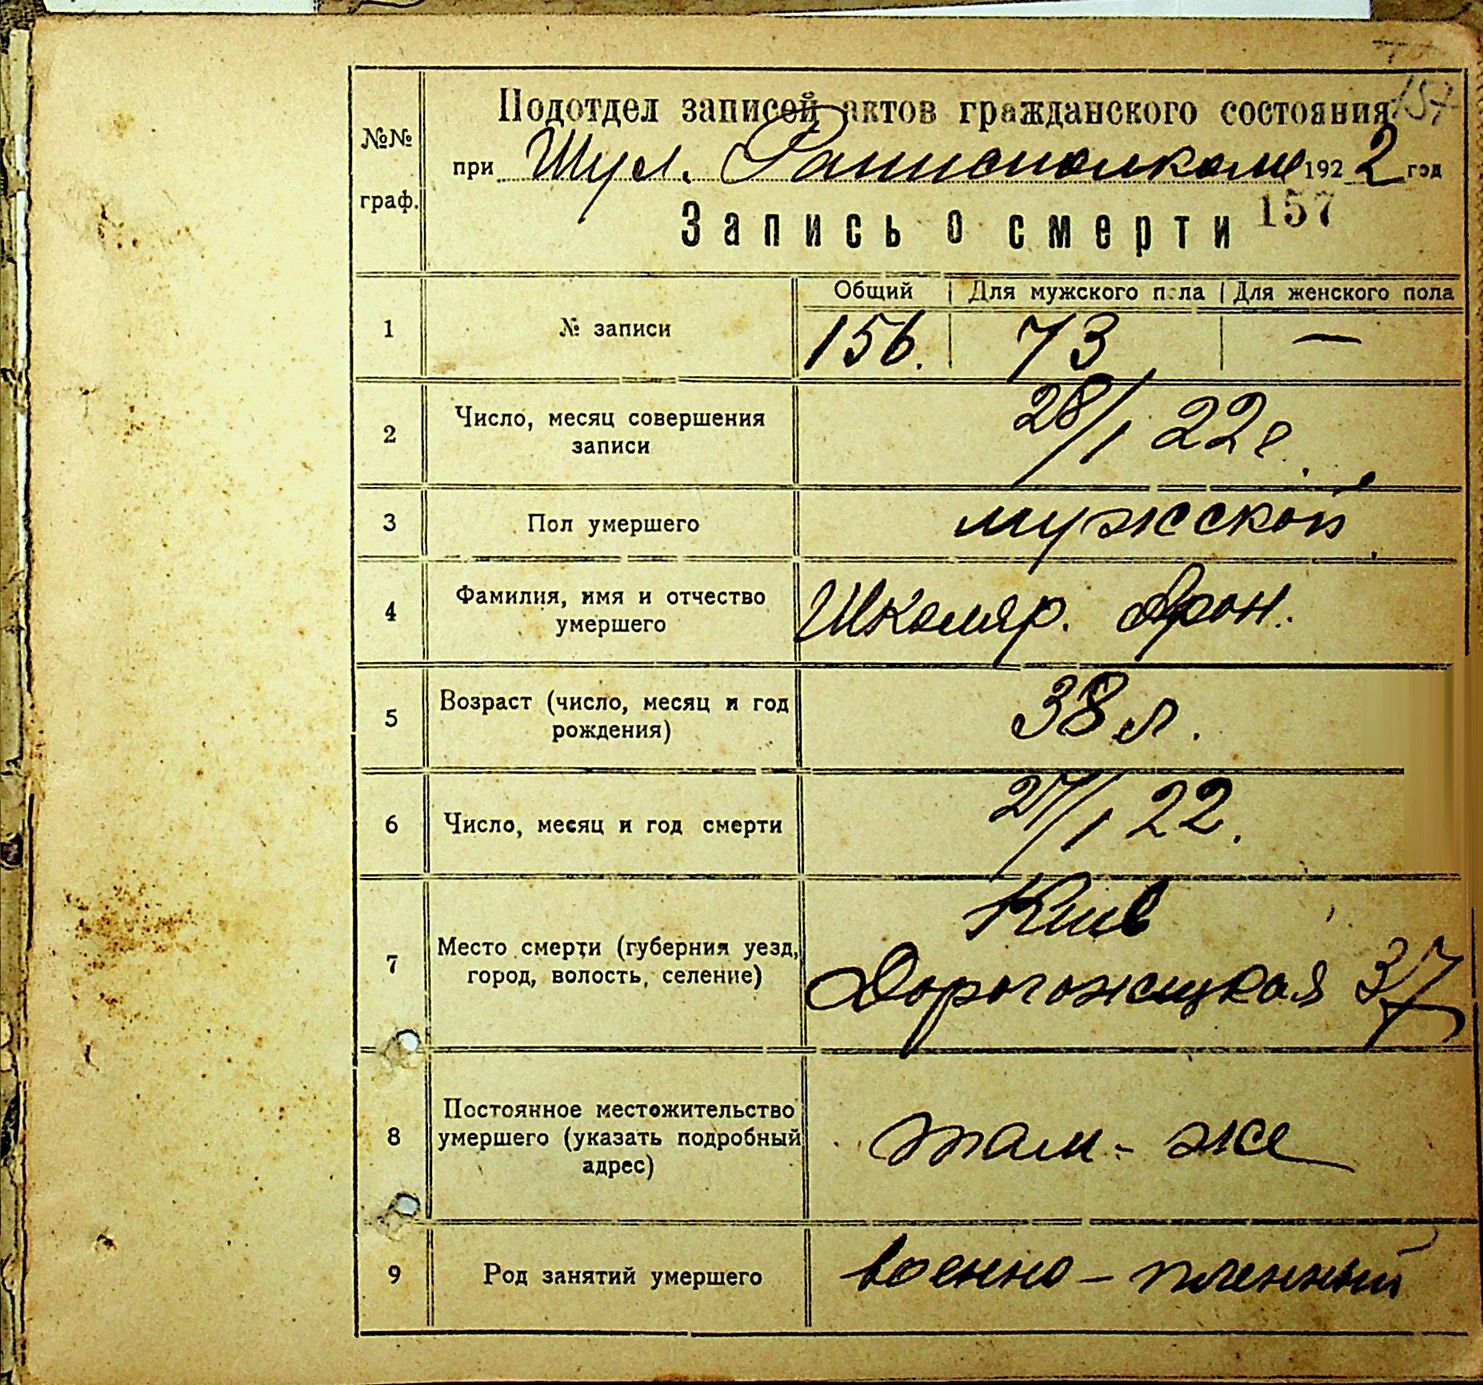 157
Подотдел записей актов гражданского состояния
№№ граф.
при Шул. Райисполкоме 1922 год
157
Запись о смерти
Общий Для мужского пола Для женского пола
1 № записи 156. 73 —
2 Число, месяц совершения записи 28/1 22 г.
3 Пол умершего мужской
4 Фамилия, имя и отчество умершего Школяр. Арон.
5 Возраст (число, месяц и год рождения) 38 л.
6 Число, месяц и год смерти 27/1 22.
7 Место смерти (губерния уезд, город, волость, селение) Киев
Дорогожицкая 37
8 Постоянное местожительство умершего (указать подробный адрес) там-же
9 Род занятий умершего военно-пленный